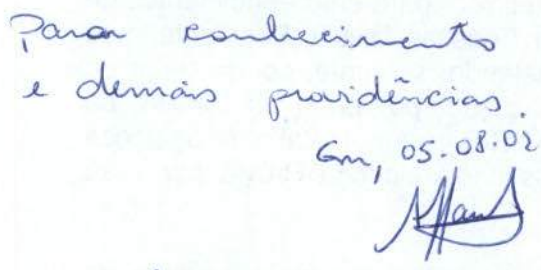 Para conhecimento
e demais providências.
Em, 05.08.02